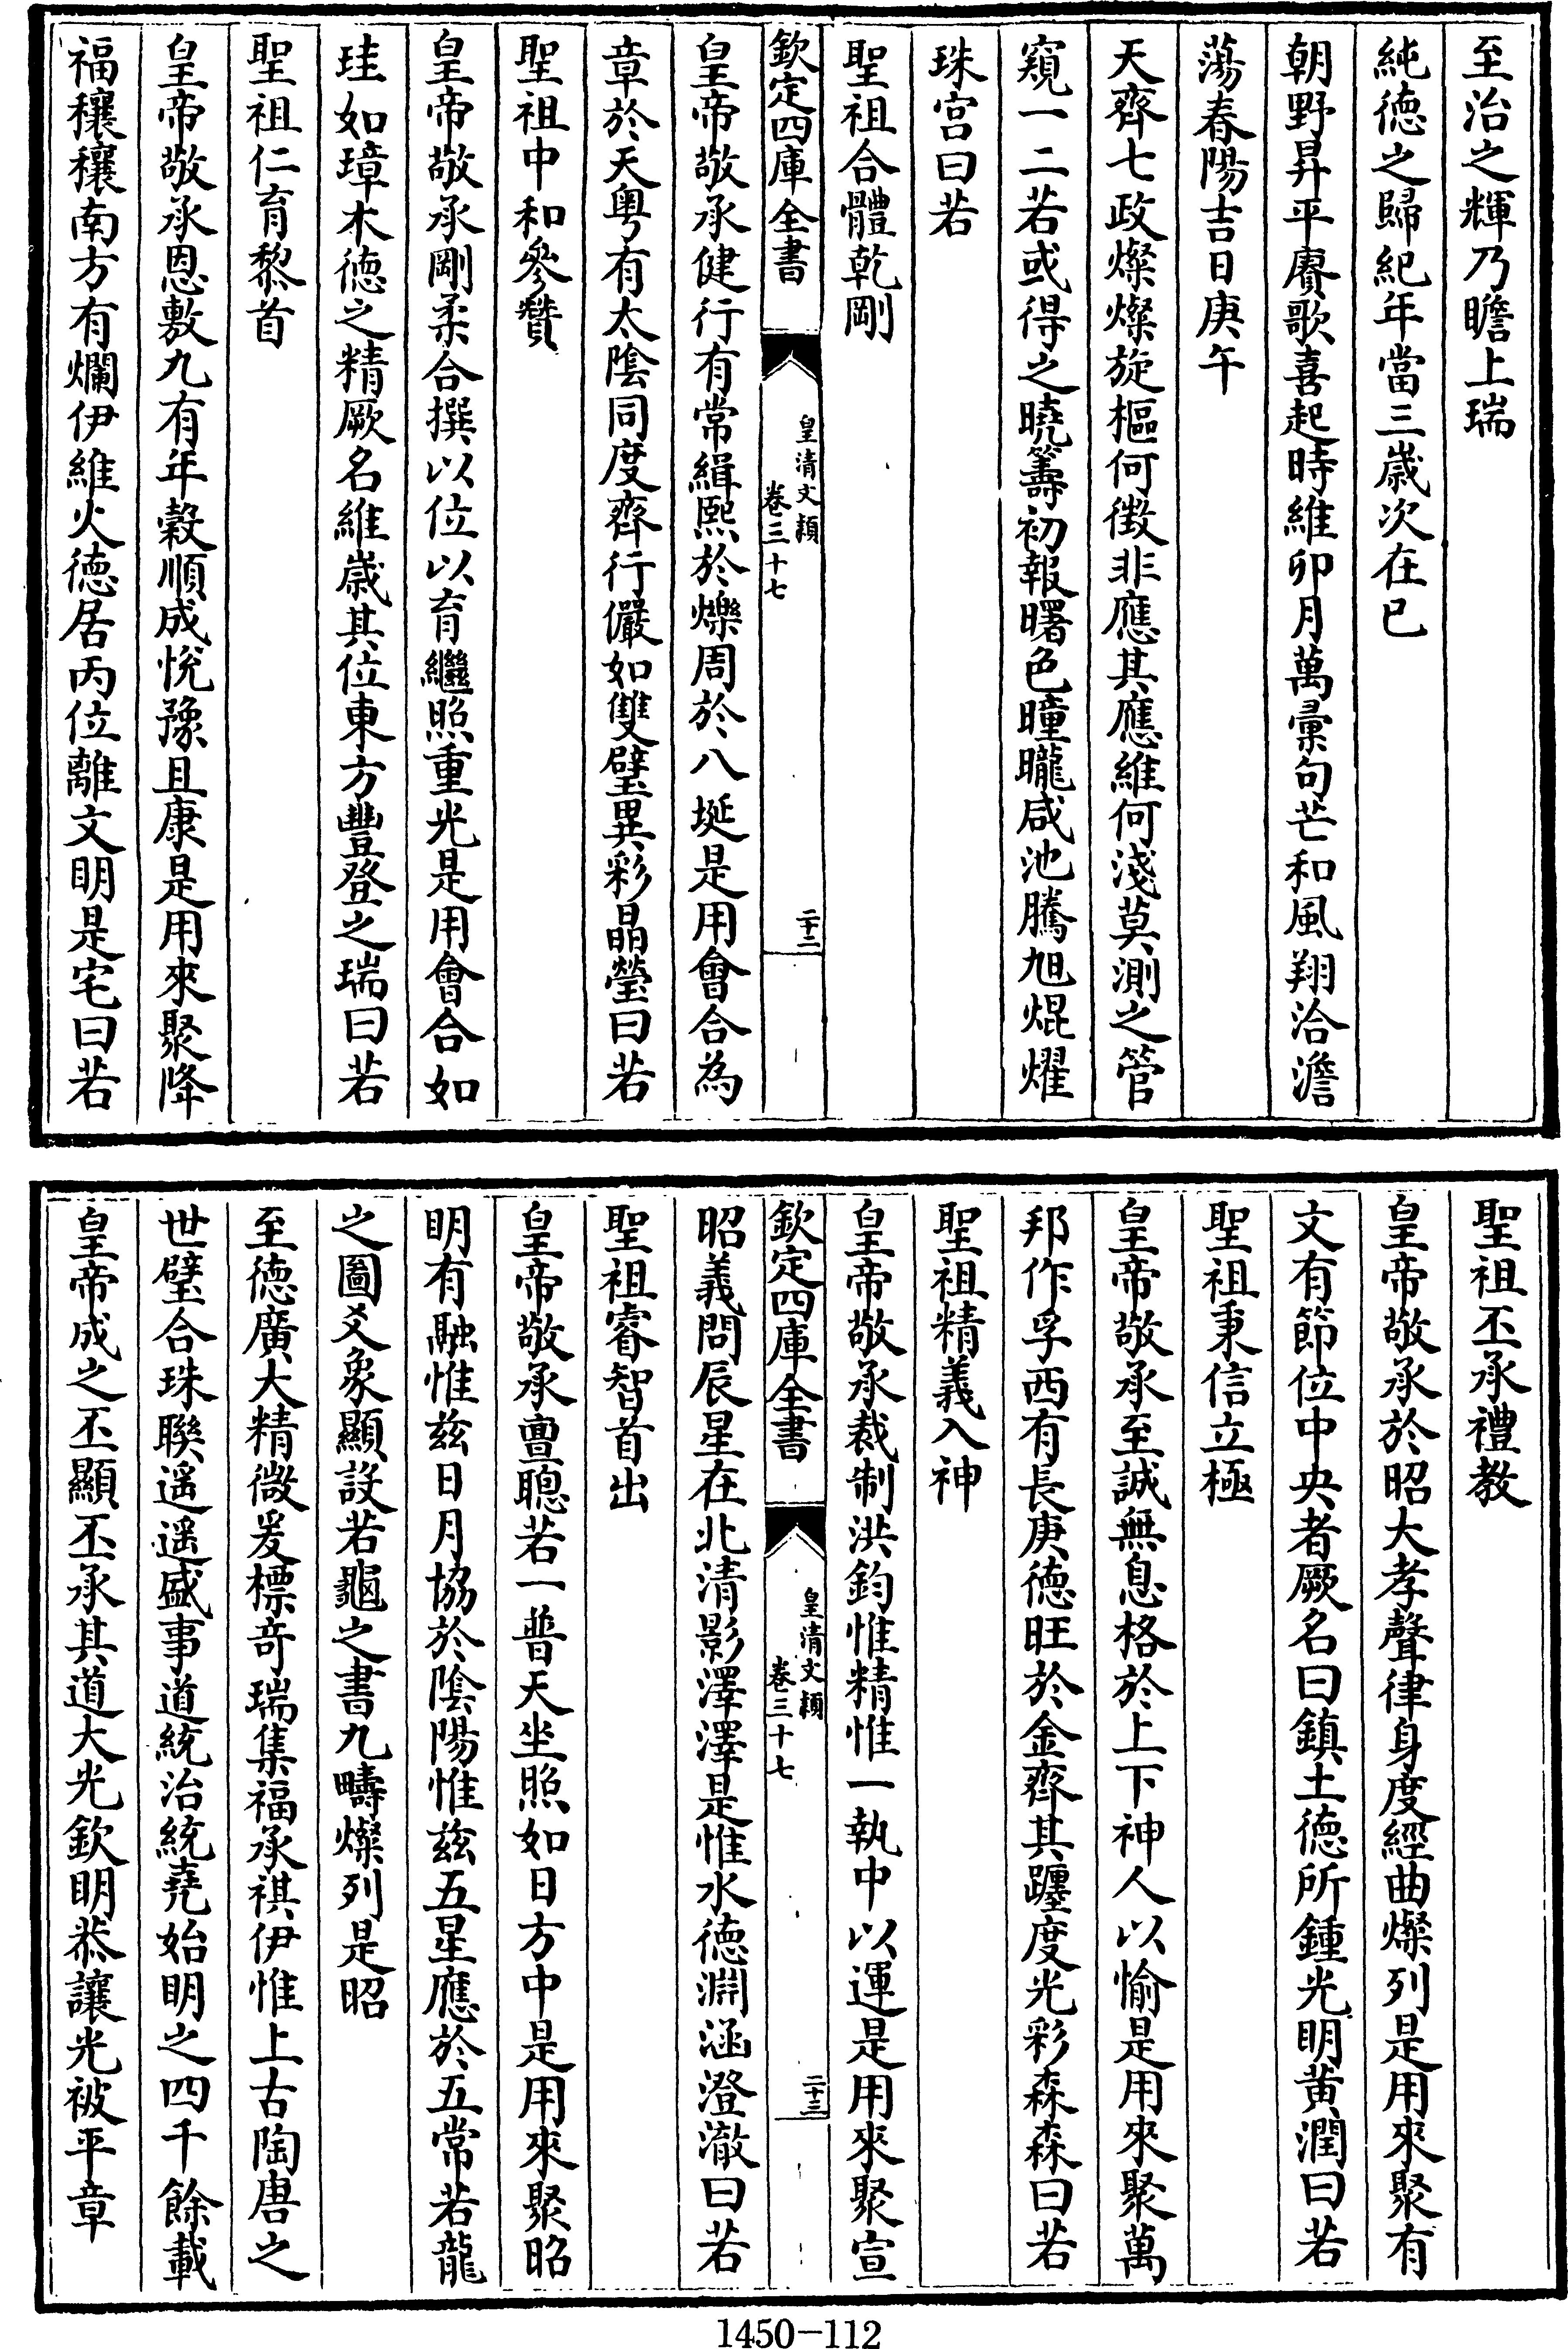 至治之輝乃瞻上瑞
純徳之歸紀年當三歲次在巳
朝野昇平賡歌喜起時維卯月萬彚句芒和風翔洽澹
蕩春陽吉日庚午
天齊七政燦燦旋樞何徵非應其應維何淺莫測之管
窺一二若或得之曉籌初報曙色曈曨咸池騰旭焜燿
珠宫曰若
聖祖合體乾剛
欽定四庫全書
皇清文穎
卷三十七
二十二
皇帝敬承健行有常緝熙於爍周於八埏是用會合為
章於天粤有太陰同度齊行儼如雙璧異彩晶瑩曰若
聖祖中和參贊
皇帝敬承剛柔合撰以位以育繼照重光是用會合如
珪如璋木徳之精厥名維歲其位東方豐登之瑞曰若
聖祖仁育黎首
皇帝敬承恩敷九有年榖順成悅豫且康是用來聚降
福穰穰南方有爛伊維火徳居丙位離文明是宅曰若
聖祖丕承禮教
皇帝敬承於昭大孝聲律身度經曲燦列是用來聚有
文有節位中央者厥名曰鎮土徳所鍾光明黄潤曰若
聖祖秉信立極
皇帝敬承至誠無息格於上下神人以愉是用來聚萬
邦作孚西有長庚徳旺於金齊其躔度光彩森森曰若
聖祖精義入神
皇帝敬承裁制洪鈞惟精惟一執中以運是用來聚宣
欽定四庫全書
皇清文穎
卷三十七
二十三
昭義問辰星在北清影澤澤是惟水徳淵涵澄澈曰若
聖祖睿智首出
皇帝敬承亶聰若一普天坐照如日方中是用來聚昭
明有融惟兹日月協於陰陽惟兹五星應於五常若龍
之圖爻象顯設若龜之書九疇燦列是昭
至徳廣大精微爰標竒瑞集福承祺伊惟上古陶唐之
世璧合珠聨遥遥盛事道統治統堯始明之四千餘載
皇帝成之丕顯丕承其道大光欽明恭讓光被平章
1450-112